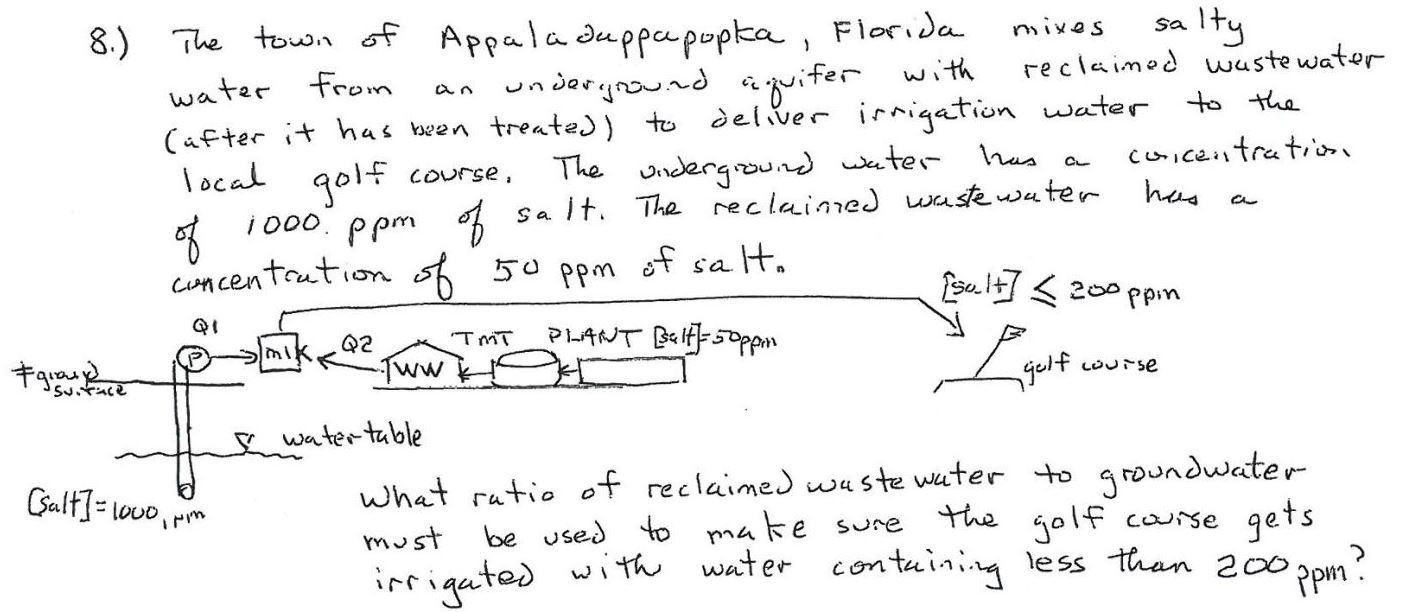 8.) The town of Appaladuppapopka, Florida mixes salty
water from an underground aquifer with reclaimed wastewater
(after it has been treated) to deliver irrigation water to the
local golf course. The underground water has a concentration
of 1000. ppm of salt. The reclaimed wastewater has a
concentration of 50 ppm of salt.
[salt] ≤ 200 ppm
Q1
P
mix
Q2
TMT PLANT [salt]=50ppm
WW
golf course
ground
surface
water table
[salt]=1000, ppm
What ratio of reclaimed wastewater to groundwater
must be used to make sure the golf course gets
irrigated with water containing less than 200 ppm?